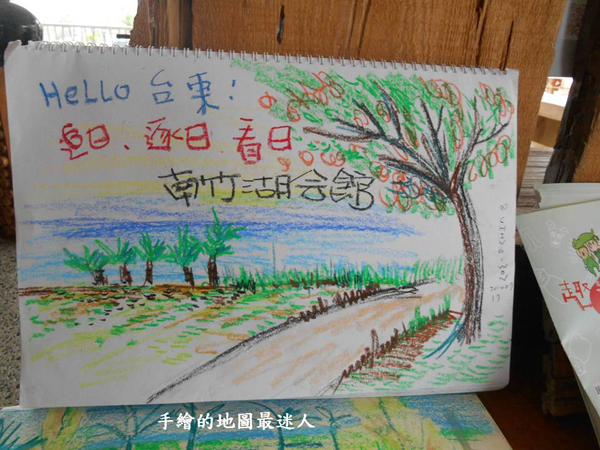 HeLLO 台東!
追日、逐日、看日
南竹湖會館
趣
手繪的地圖最迷人